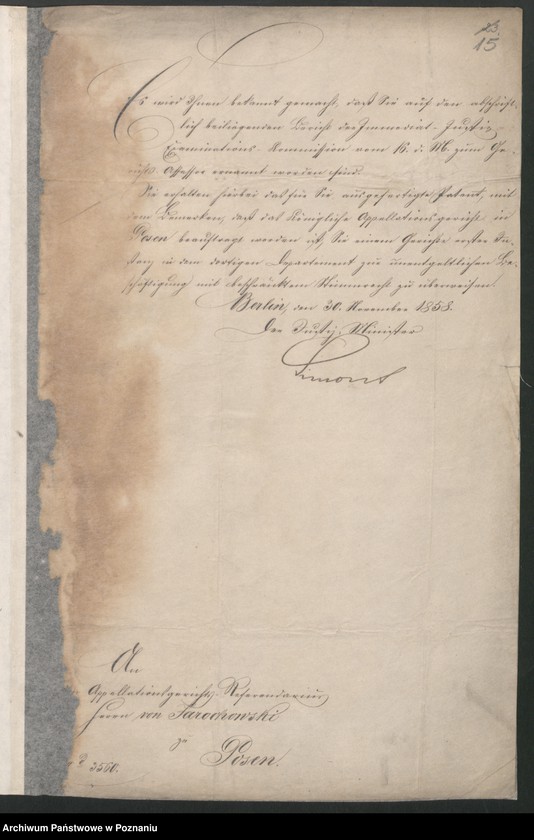 23
15
Es wird Ihnen bekannt gemacht, daß Sie auf den abschrift-
lich beiliegenden Bericht der Immediat-Justiz-
Examinations-Kommission vom 18. d. M. zum Ge-
richts-Assessor ernannt worden sind.
Sie erhalten hierbei das für Sie ausgefertigte Patent, mit
dem Bemerken, daß das Königliche Appellationsgericht in
Posen beauftragt worden ist, Sie einem Gerichte erster In-
stanz in dem dortigen Departement zur unentgeltlichen Be-
schäftigung mit beschränktem Stimmrecht zu überweisen.
Berlin, den 30. November 1858.
Der Justiz-Minister
Simons
An
Appellationsgerichts-Referendarius
Herrn von Jarochowski
zu
Posen.
3560.
Archiwum Państwowe w Poznaniu